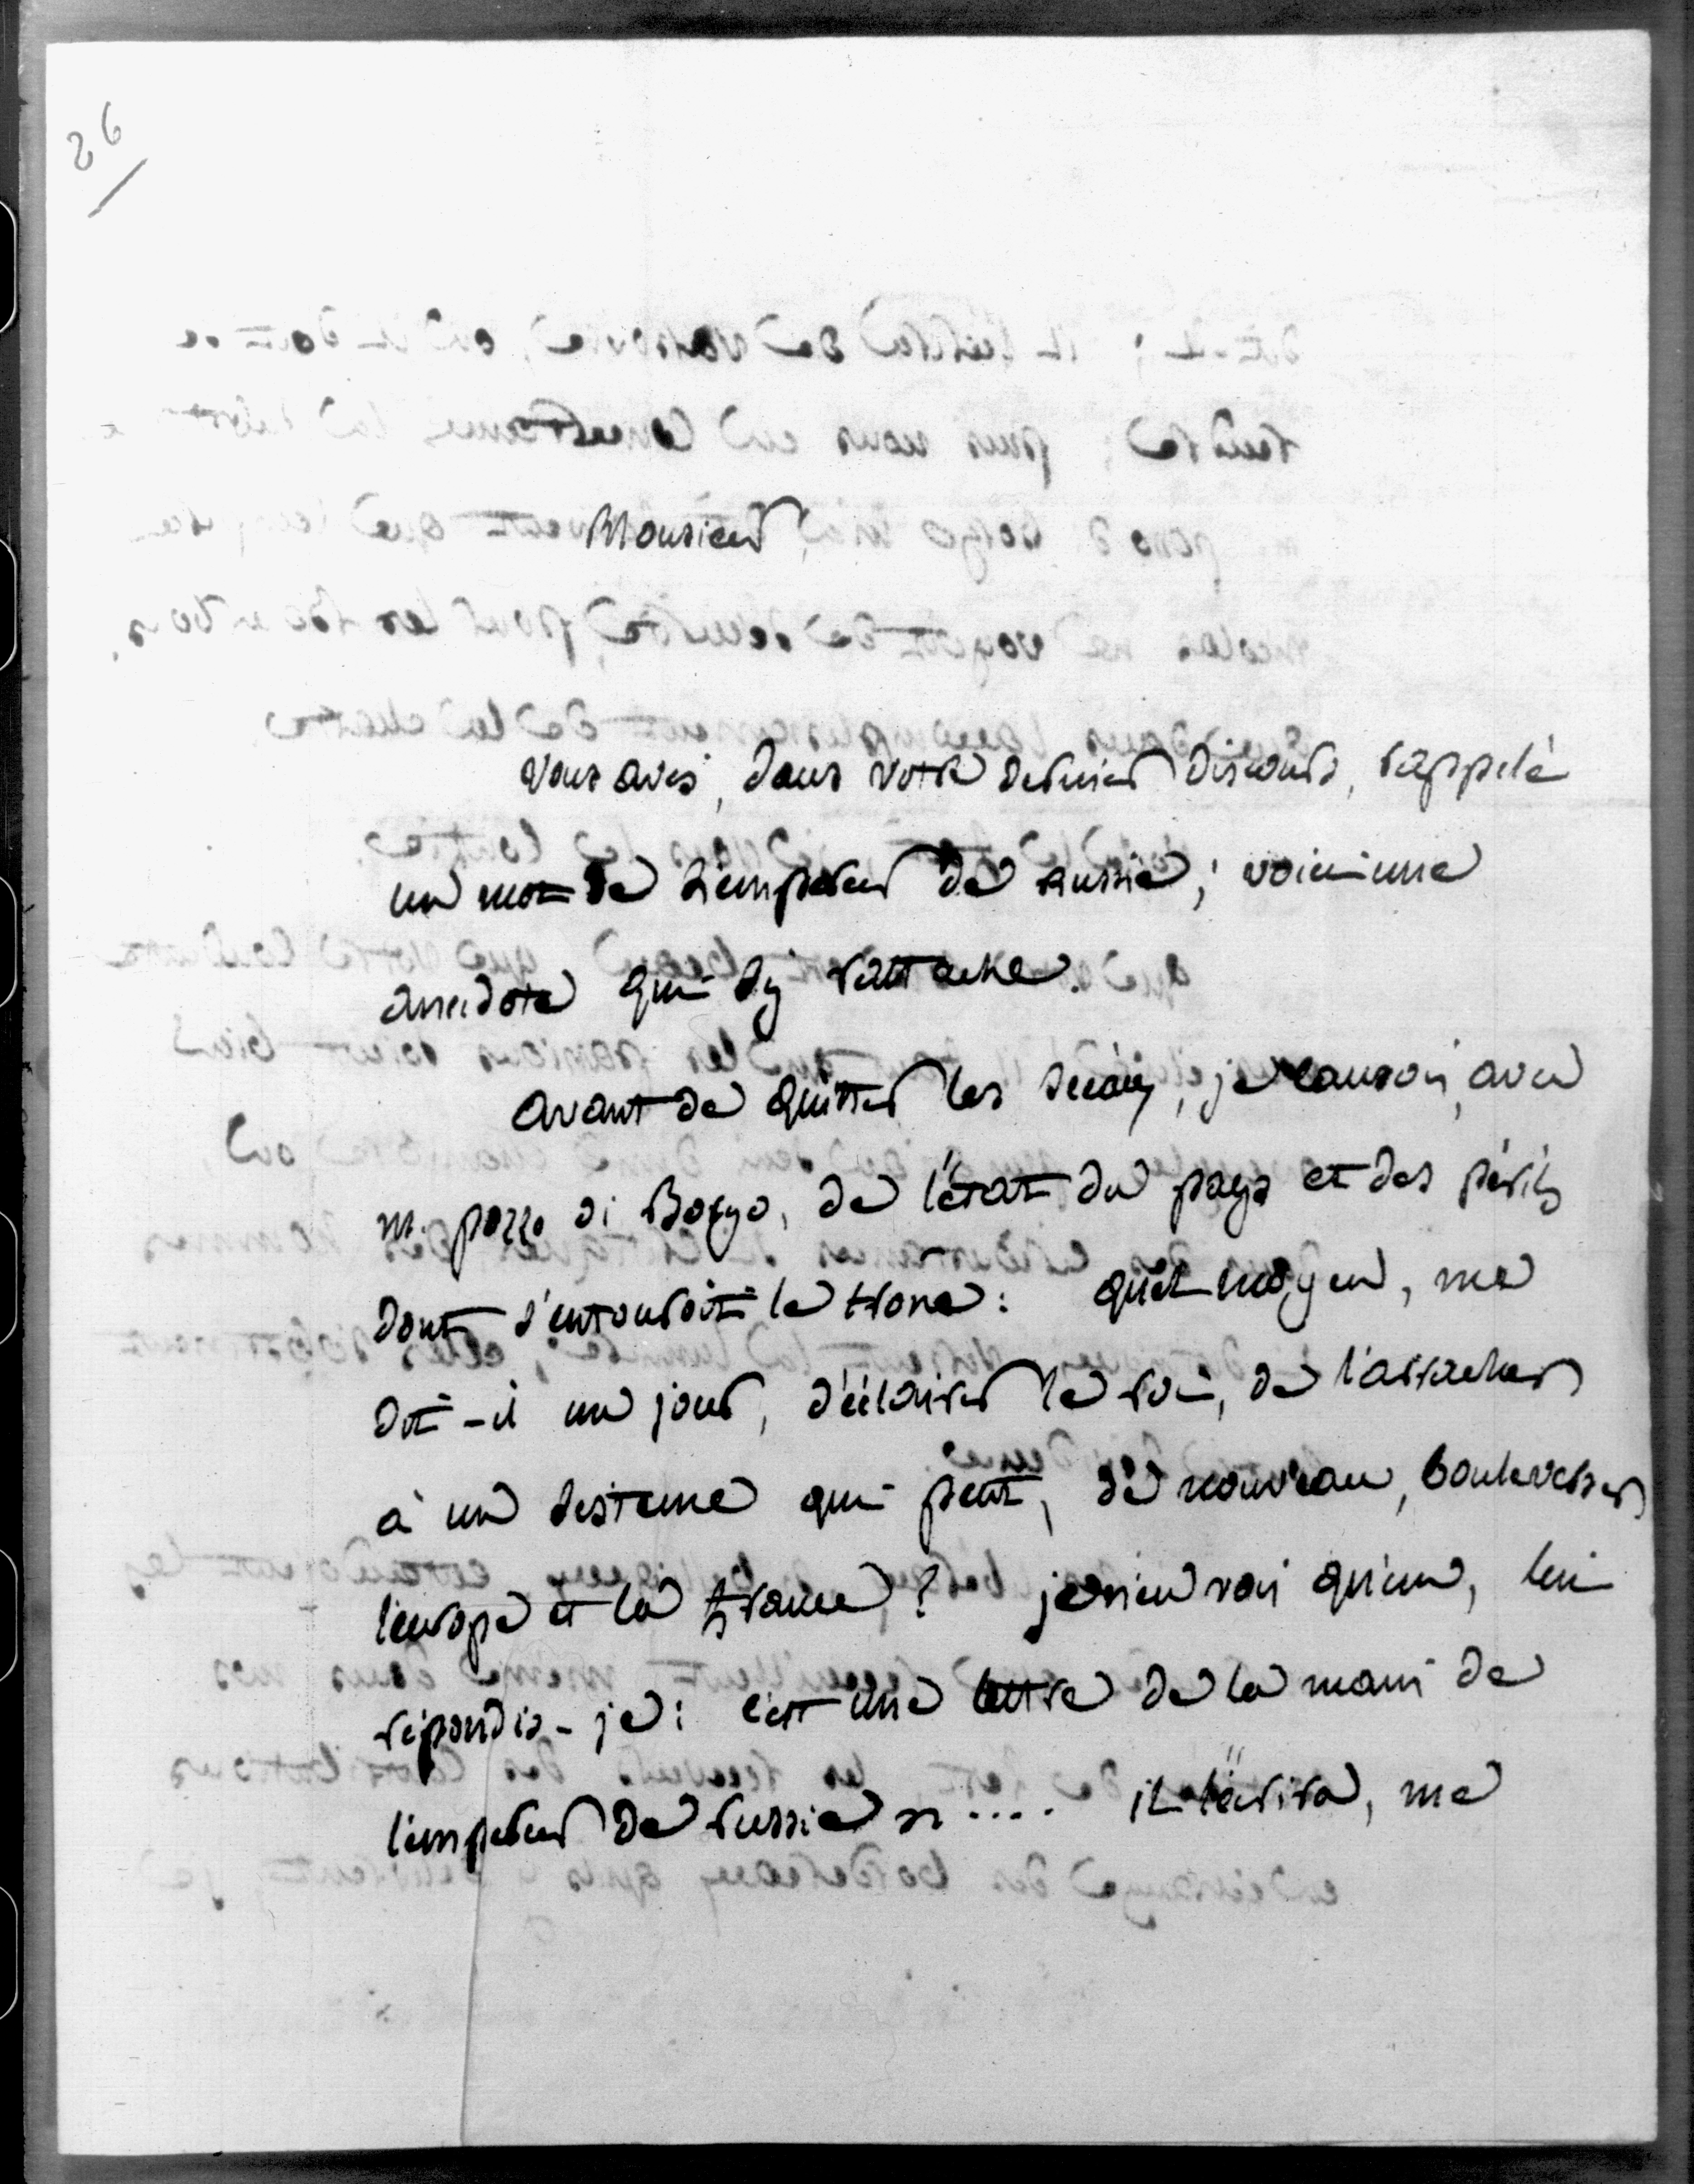 26
Monsieur,
vous avés, dans votre dernier discours, rappelé
un mot de L'empereur de Russie; voici une
anecdote qui s'y rattache.
avant de quitter les sceaux, je causois, avec
m. pozzo di Borgo, de l'état du pays et des périls
dont s'entouroit le trone: quel moyen, me
dit-il un jour, d'éclairer le roi, de l'arracher
à un sisteme qui peut, de nouveau, bouleverser
l'europe et la france? je n'en vois qu'un, lui
répondis-je: c'est une lettre de la main de
l'empereur de russie .... il l'écrira, me